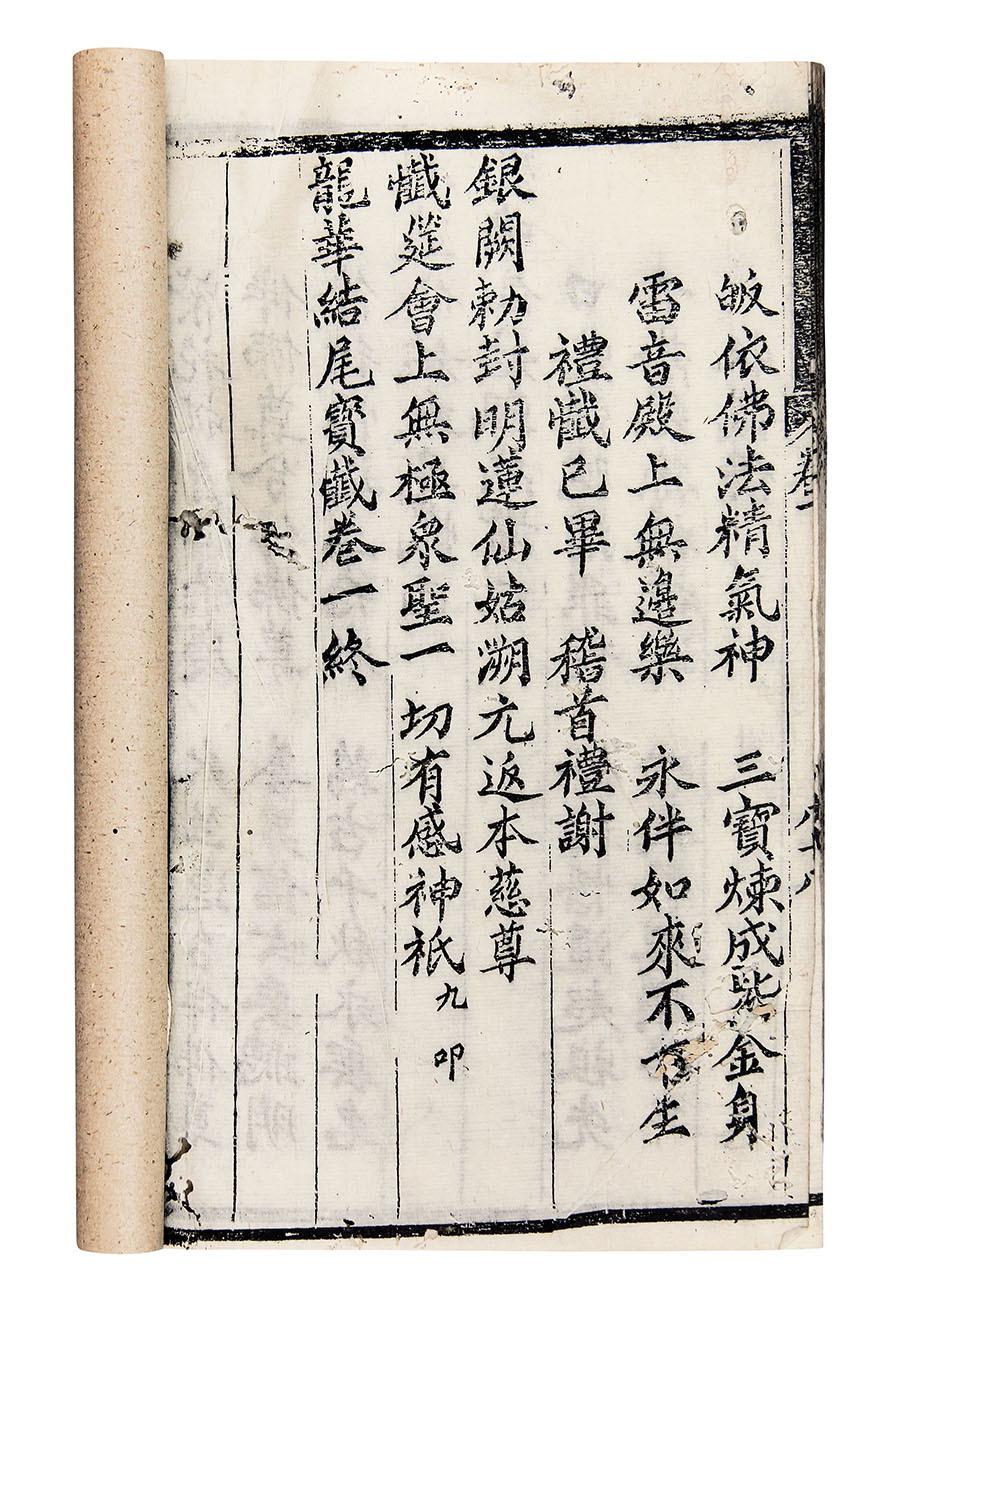 皈依佛法精氣神　三寶煉成紫金身
雷音殿上無邊樂　永伴如來不 生
禮懺已畢　稽首禮謝
銀闕勅封明蓮仙姑溯元返本慈尊
懺筵會上無極衆聖一切有感神祇 九叩
龍華結尾寳懺卷一終
卷一
九十八